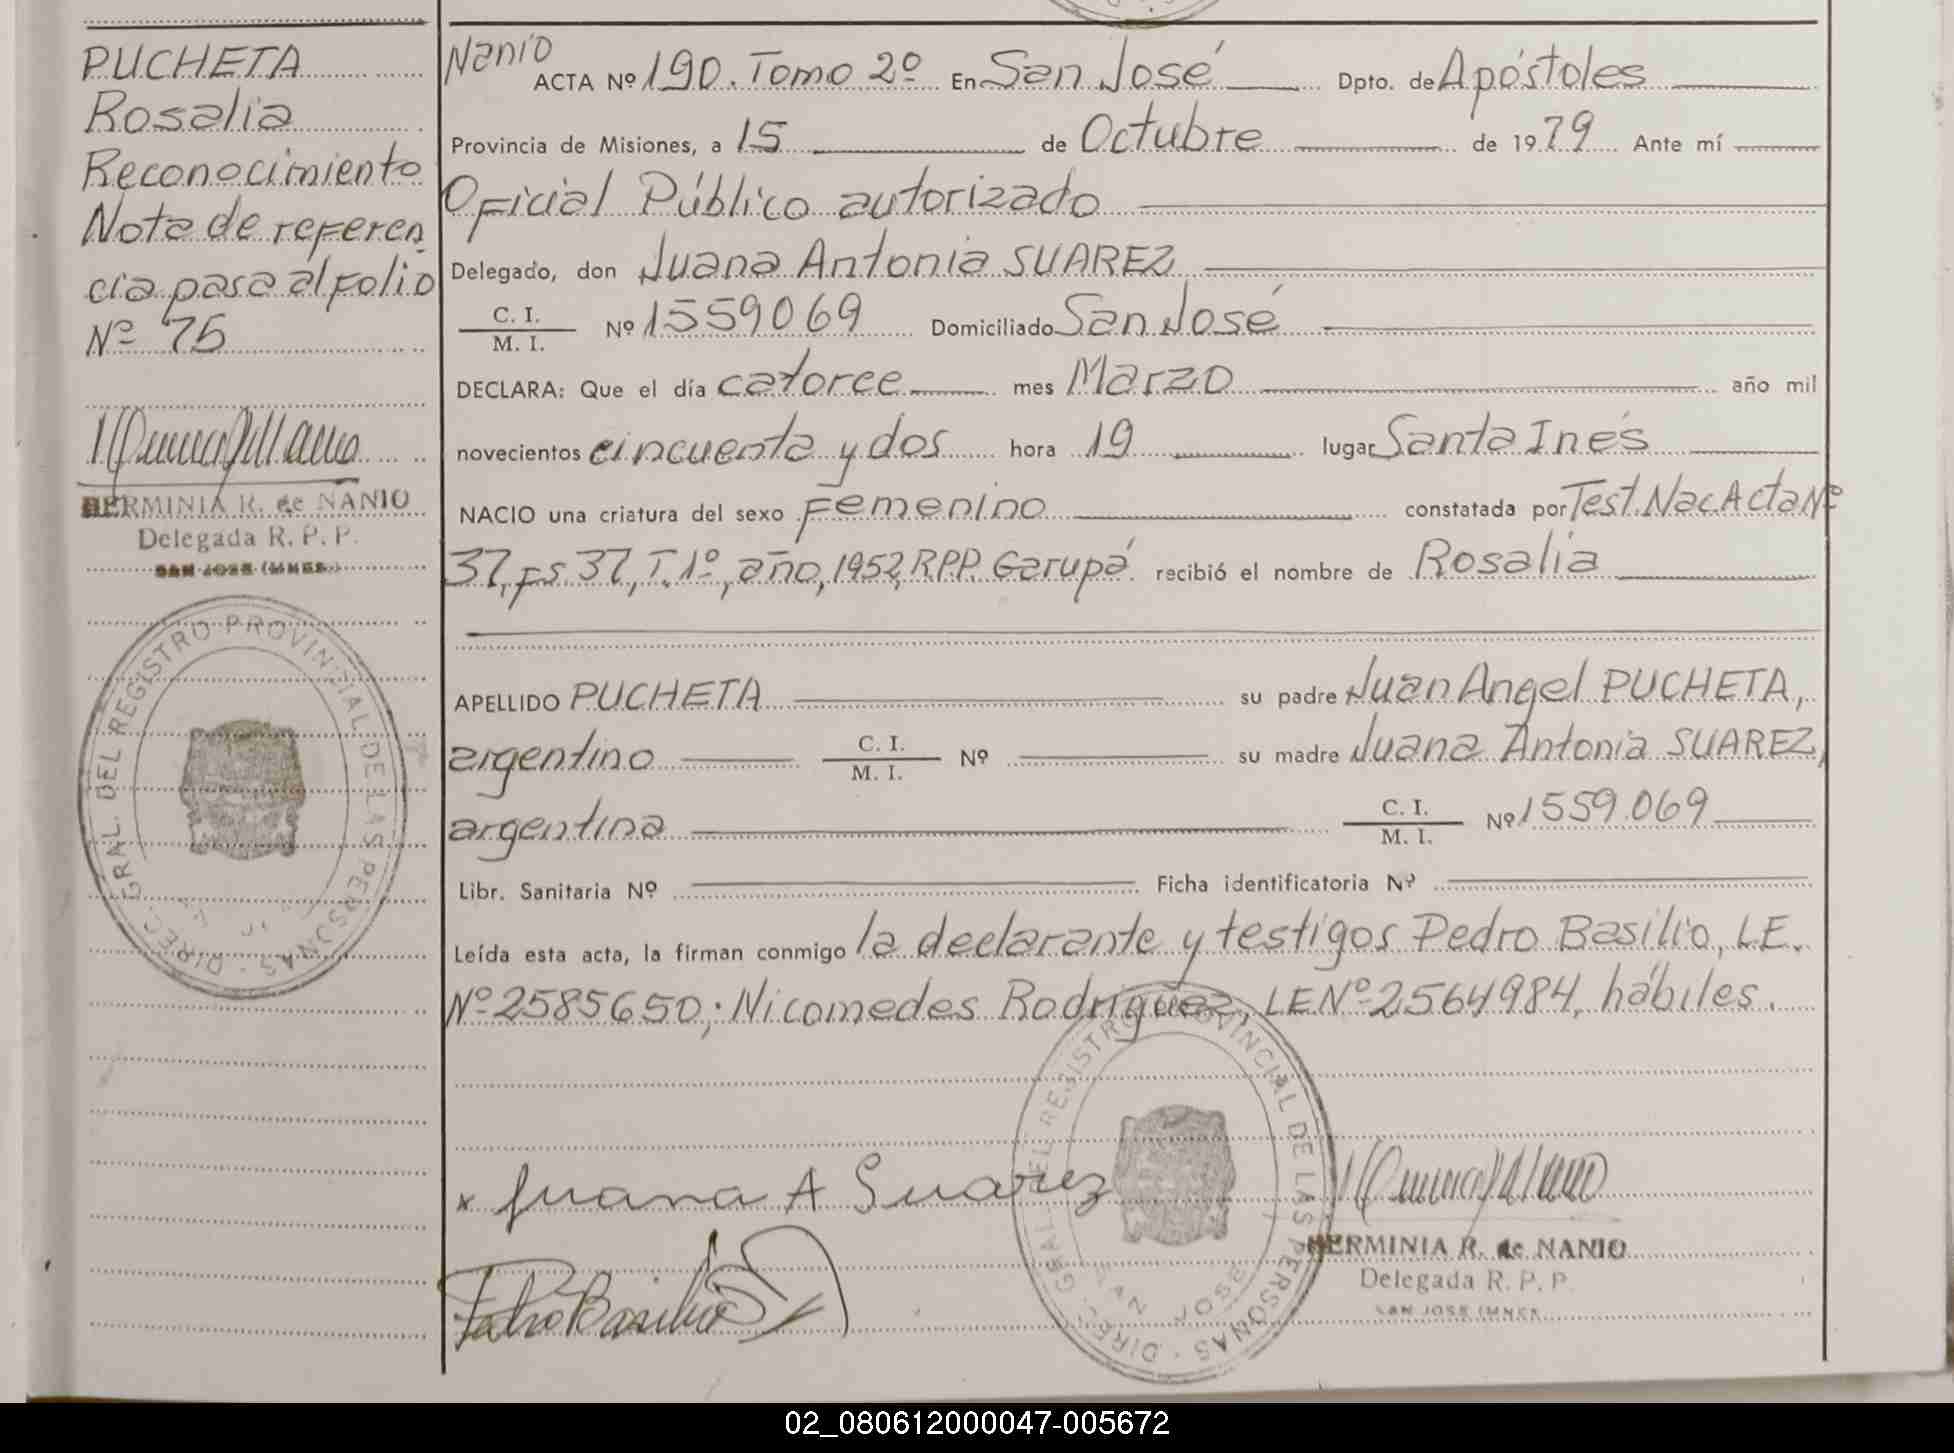 PUCHETA
Rosalia
Reconocimiento
Nota de referen
cia pasa al folio
Nº 75
HERMINIA R. de NANIO
Delegada R. P. P.
SAN JOSE (MNES.)
DIREC. GRAL. DEL REGISTRO PROVINCIAL DE LAS PERSONAS
Nanio
ACTA Nº 190. Tomo 2º En San José Dpto. de Apóstoles
Provincia de Misiones, a 15 de Octubre de 1979 Ante mí
Oficial Público autorizado
Delegado, don Juana Antonia SUAREZ
C. I.
M. I. Nº 1559069 Domiciliado San José
DECLARA: Que el día catorce mes Marzo año mil
novecientos cincuenta y dos hora 19 lugar Santa Inés
NACIO una criatura del sexo Femenino constatada por Test. Nac Acta Nº
37, fs 37, T. 1º, año, 1952, R.P.P. Garupá recibió el nombre de Rosalia
APELLIDO PUCHETA su padre Juan Angel PUCHETA,
argentino C. I.
M. I. Nº su madre Juana Antonia SUAREZ,
argentina C. I.
M. I. Nº 1559.069
Libr. Sanitaria Nº Ficha identificatoria Nº
Leída esta acta, la firman conmigo la declarante y testigos Pedro Basilio, L.E.
Nº 2585650; Nicomedes Rodríguez, LE Nº 2564984, hábiles.
x Juana A Suarez
Pedro Basilio
DIREC. GRAL. DEL REGISTRO PROVINCIAL DE LAS PERSONAS
SAN JOSE
HERMINIA R. de NANIO
Delegada R. P. P.
SAN JOSE (MNES.
02_080612000047-005672